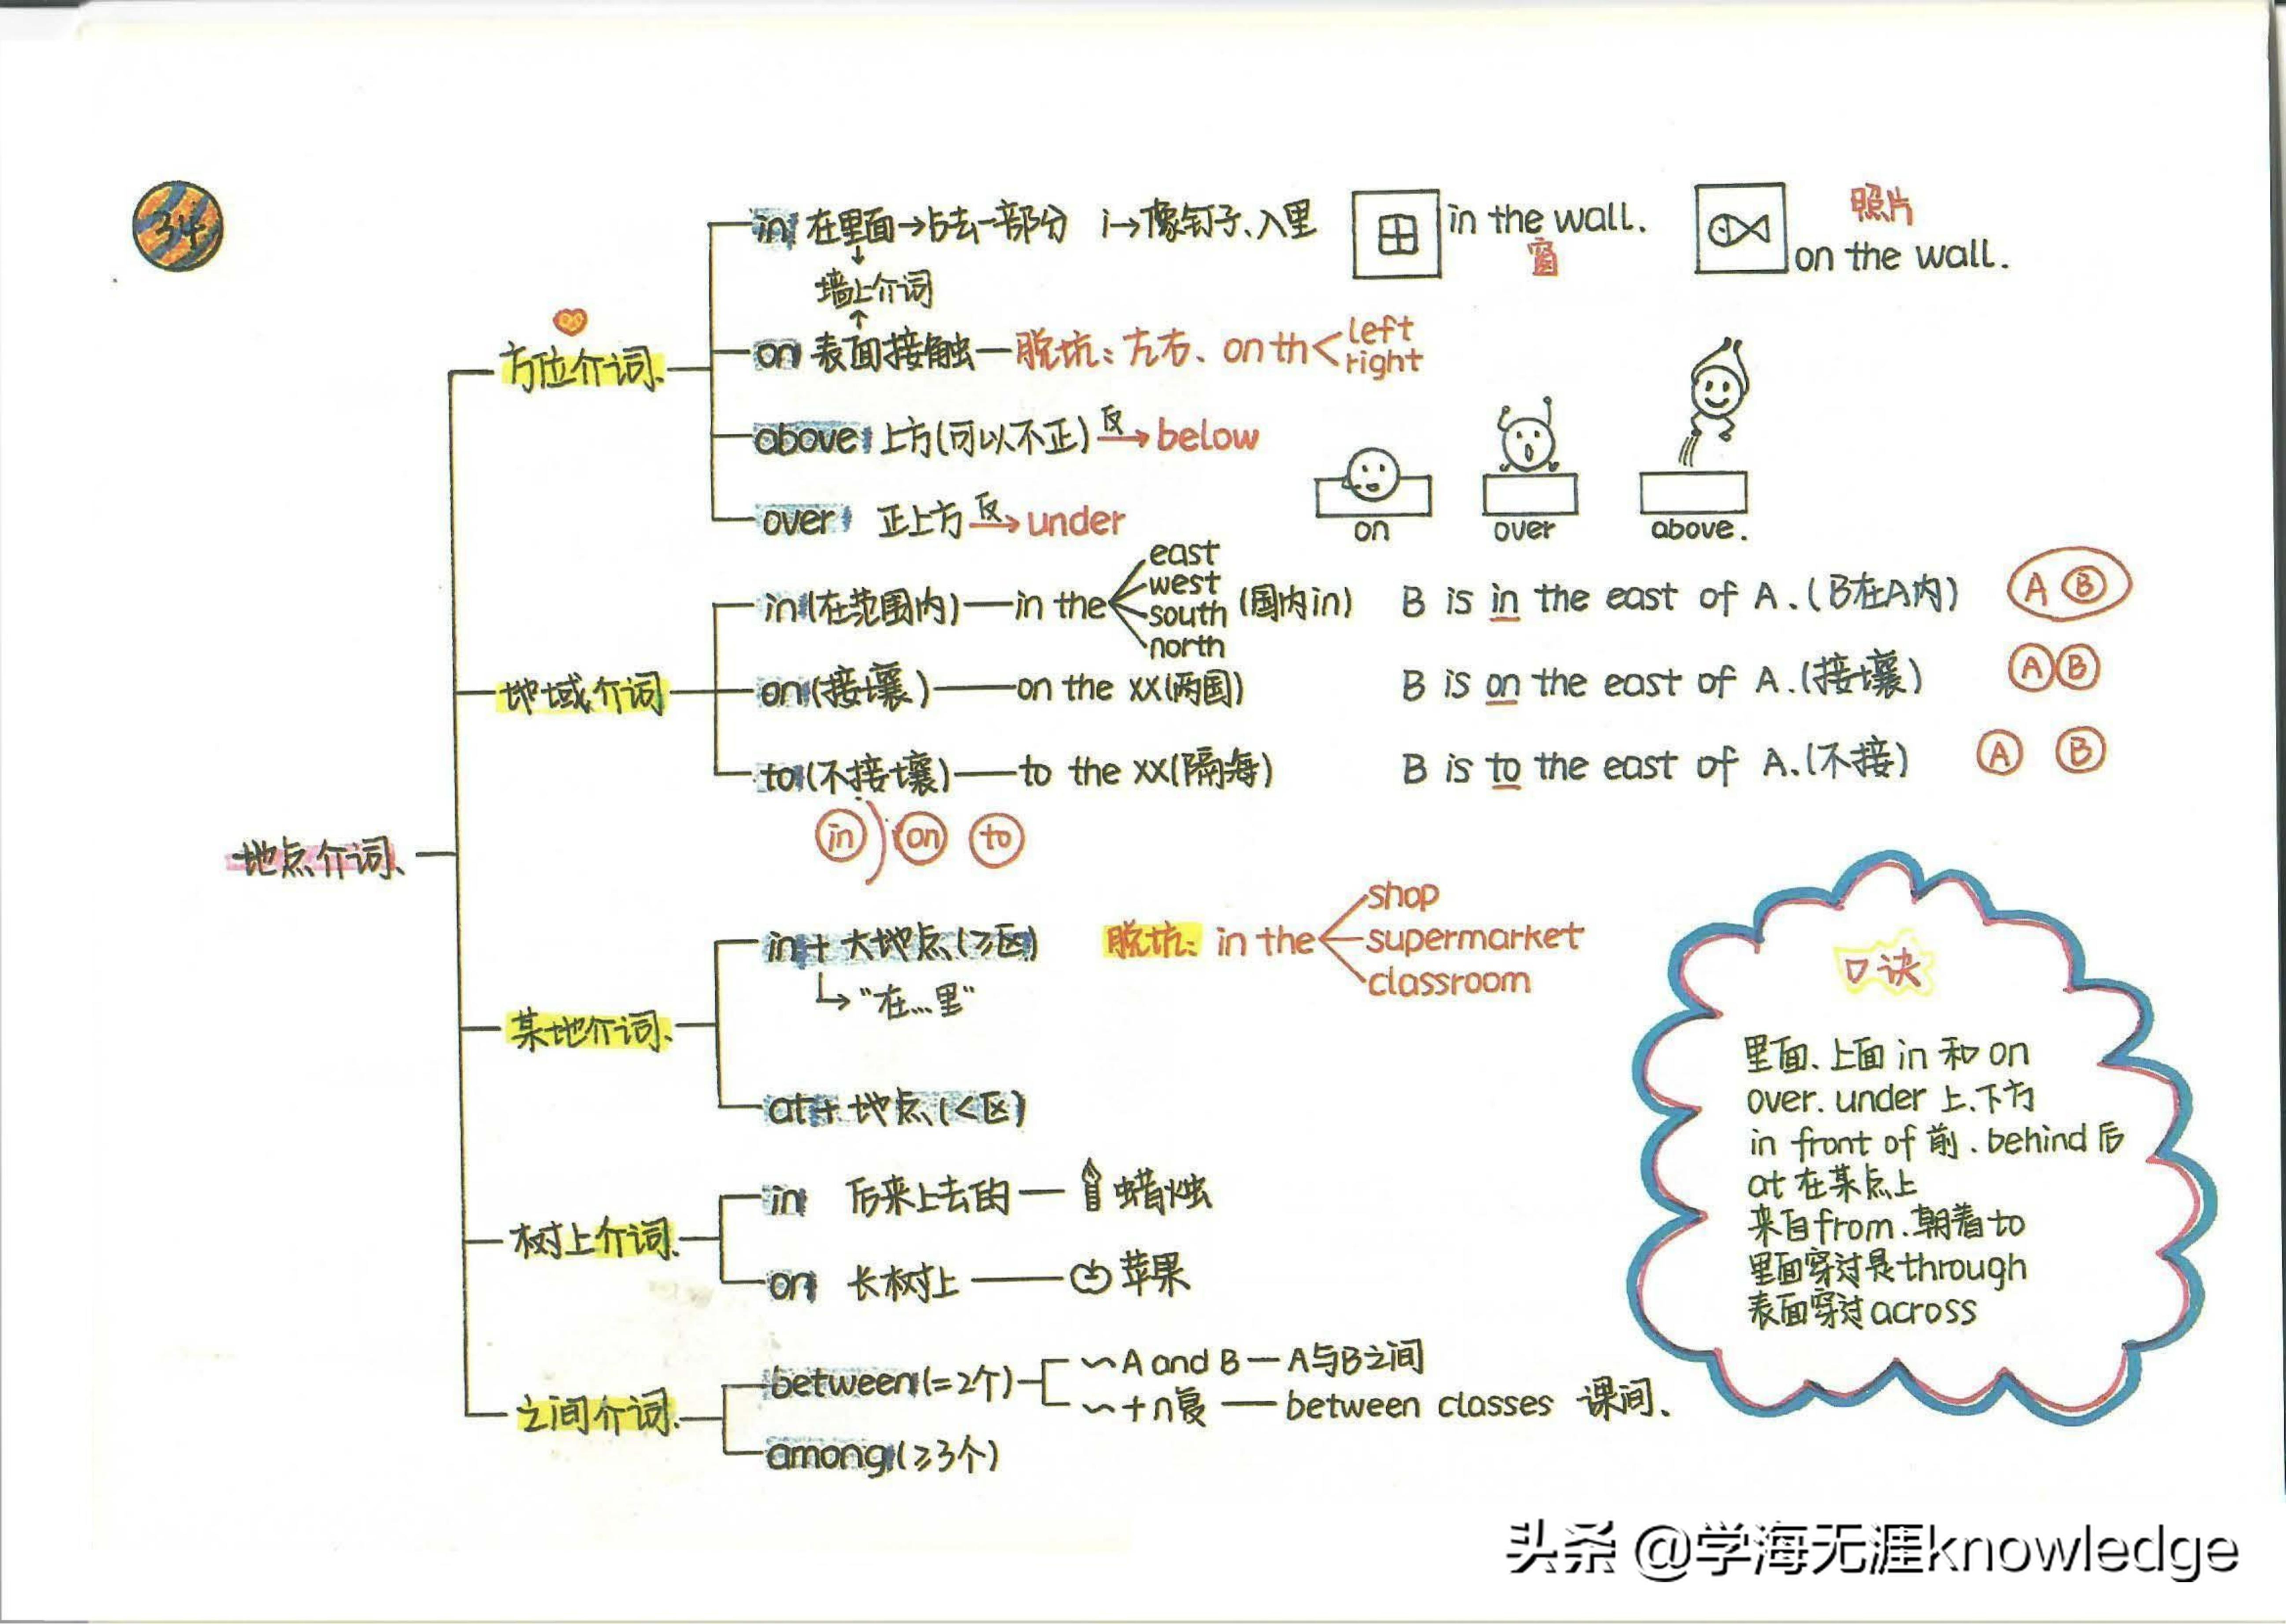 34
in 在里面→占去一部分 i→像钉子、入里 in the wall. 窗 照片 on the wall.
墙上介词
方位介词
on 表面接触—脱坑：左右、on th left right
above 上方(可以不正) 反→ below
over 正上方 反→ under
on over above.
地域介词
in (在范围内)—in the east west south north (国内in) B is in the east of A.(B在A内) A B
on (接壤)—on the xx(两国) B is on the east of A.(接壤) A B
to (不接壤)—to the xx(隔海) B is to the east of A.(不接) A B
in on to
地点介词、
某地介词、
in + 大地点(≥区) 脱坑: in the shop supermarket classroom
→"在...里"
at + 地点(<区)
树上介词、
in 后来上去的— 蜡烛
on 长树上— 苹果
之间介词、
between (=2个) ~A and B—A与B之间
~+n复—between classes 课间、
among (≥3个)
口诀
里面、上面 in 和 on
over. under 上、下方
in front of 前. behind 后
at 在某点上
来自from. 朝着to
里面穿过是through
表面穿过across
头条 @学海无涯knowledge